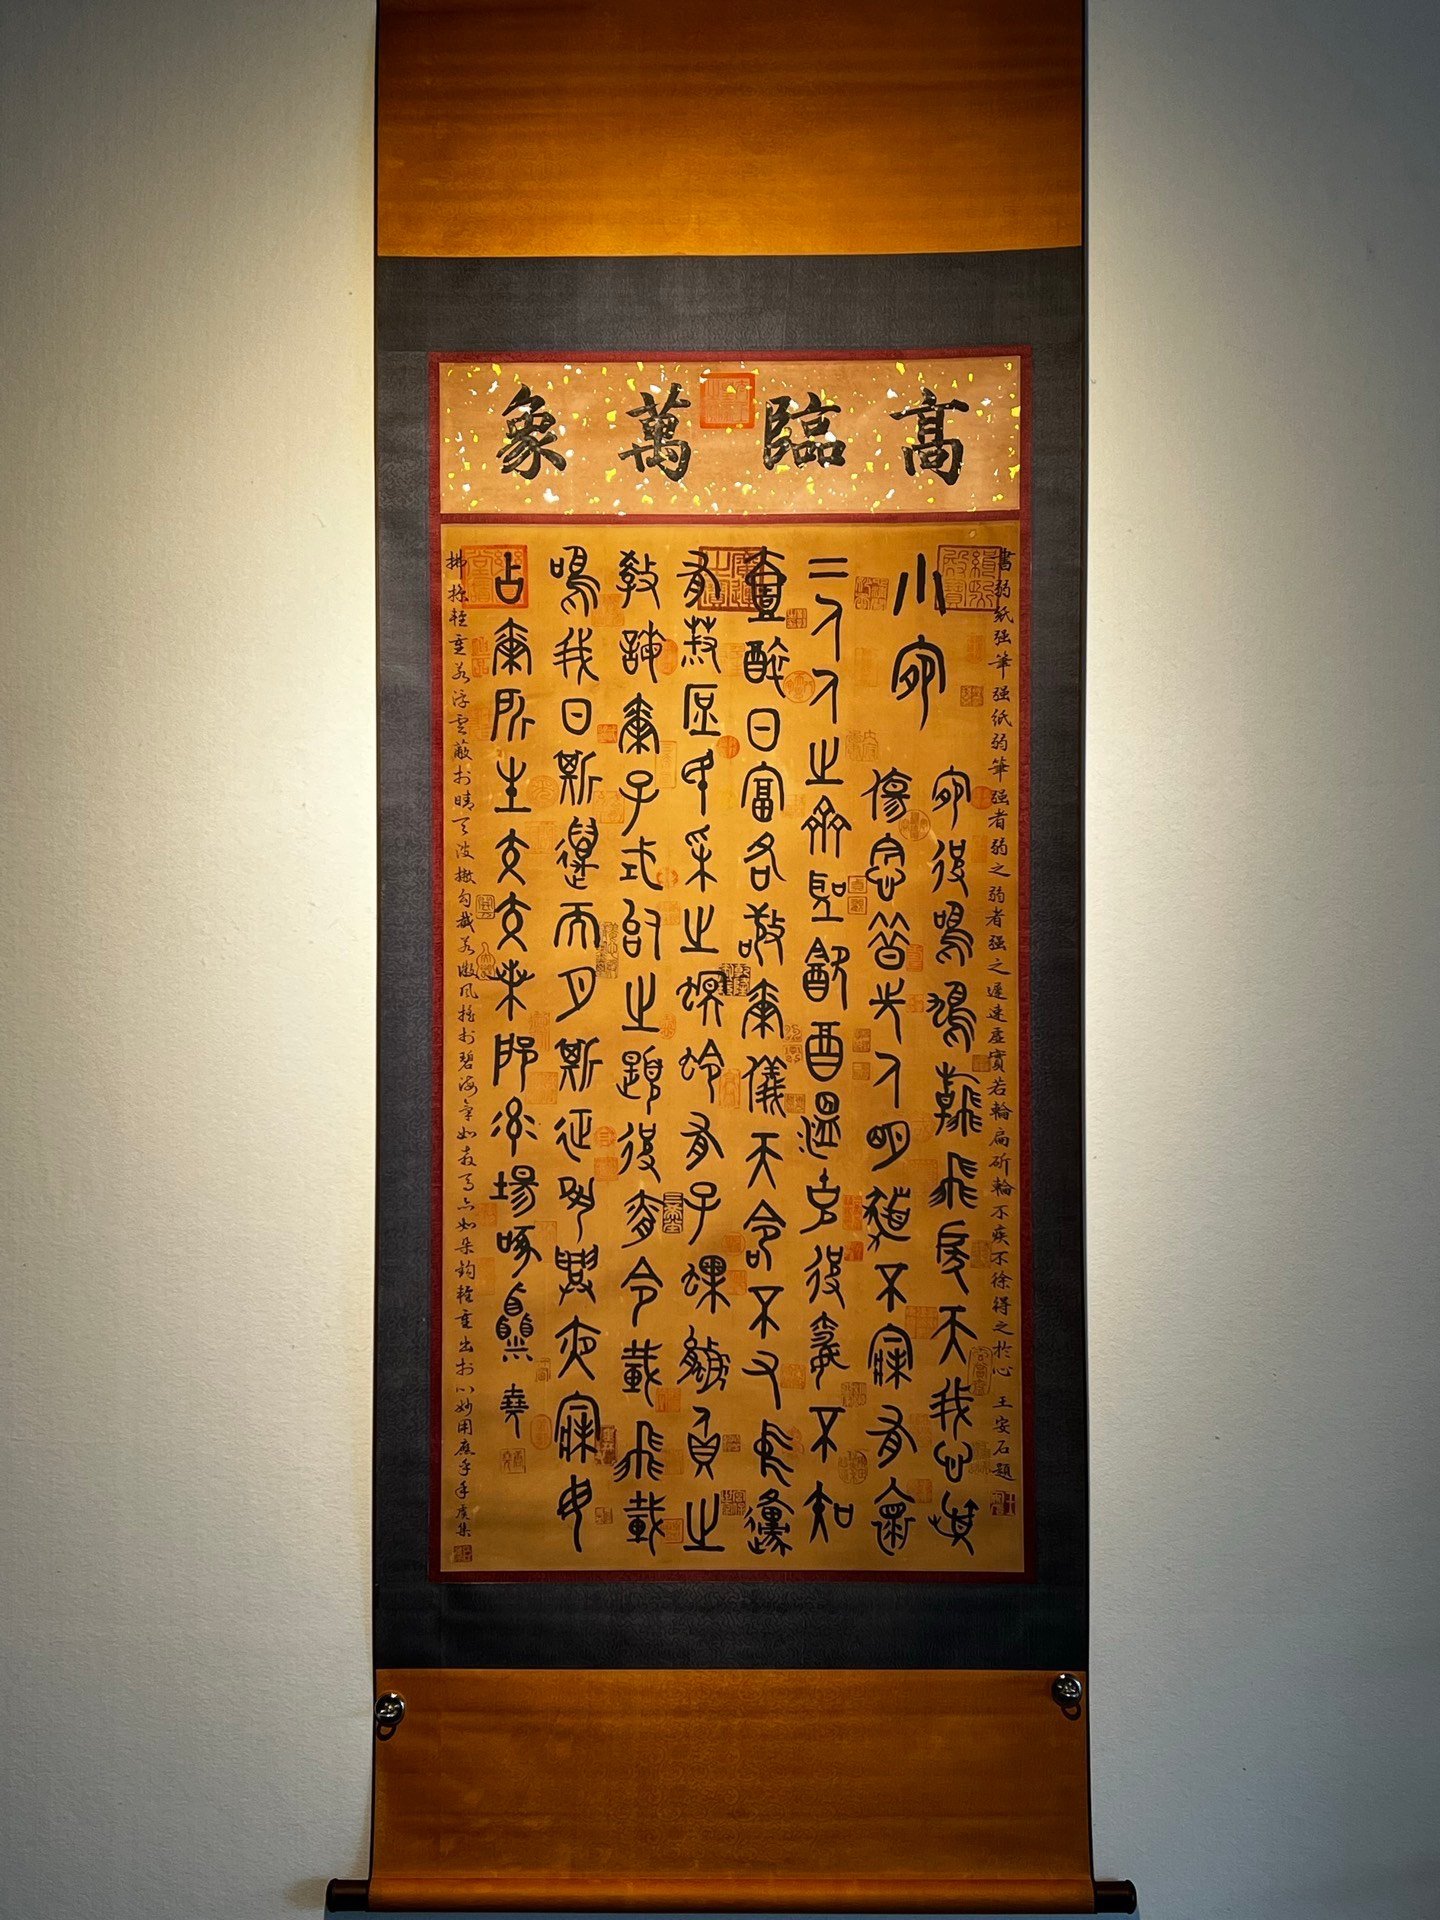 高臨萬象
書弱紙强筆强紙弱筆强者弱之弱者强之遲速虛實若輪扁斫輪不疾不徐得之於心 王安石題
小宛
宛彼鳴鳩翰飛戾天我心憂
傷念昔先人明發不寐有懷
二人人之齊聖飲酒溫克彼昏不知
壹醉日富各敬爾儀天命不又中原
有菽庶民采之螟蛉有子蜾蠃負之
教誨爾子式似之題彼脊令載飛載
鳴我日斯邁而月斯征夙興夜寐毋
忝爾所生交交桑扈率場啄粟
拂掠輕重若浮雲蔽於晴天波撇勾截若微風搖於碧海氣如奔馬亦如朵鈎輕重出於心妙用應乎手虞集